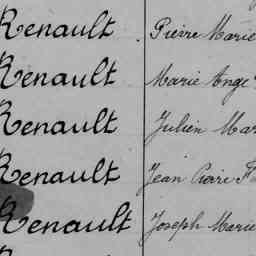 Renault Pierre Marie
Renault Marie Ange
Renault Julien Mar
Renault Jean Pierre
Renault Joseph Marie